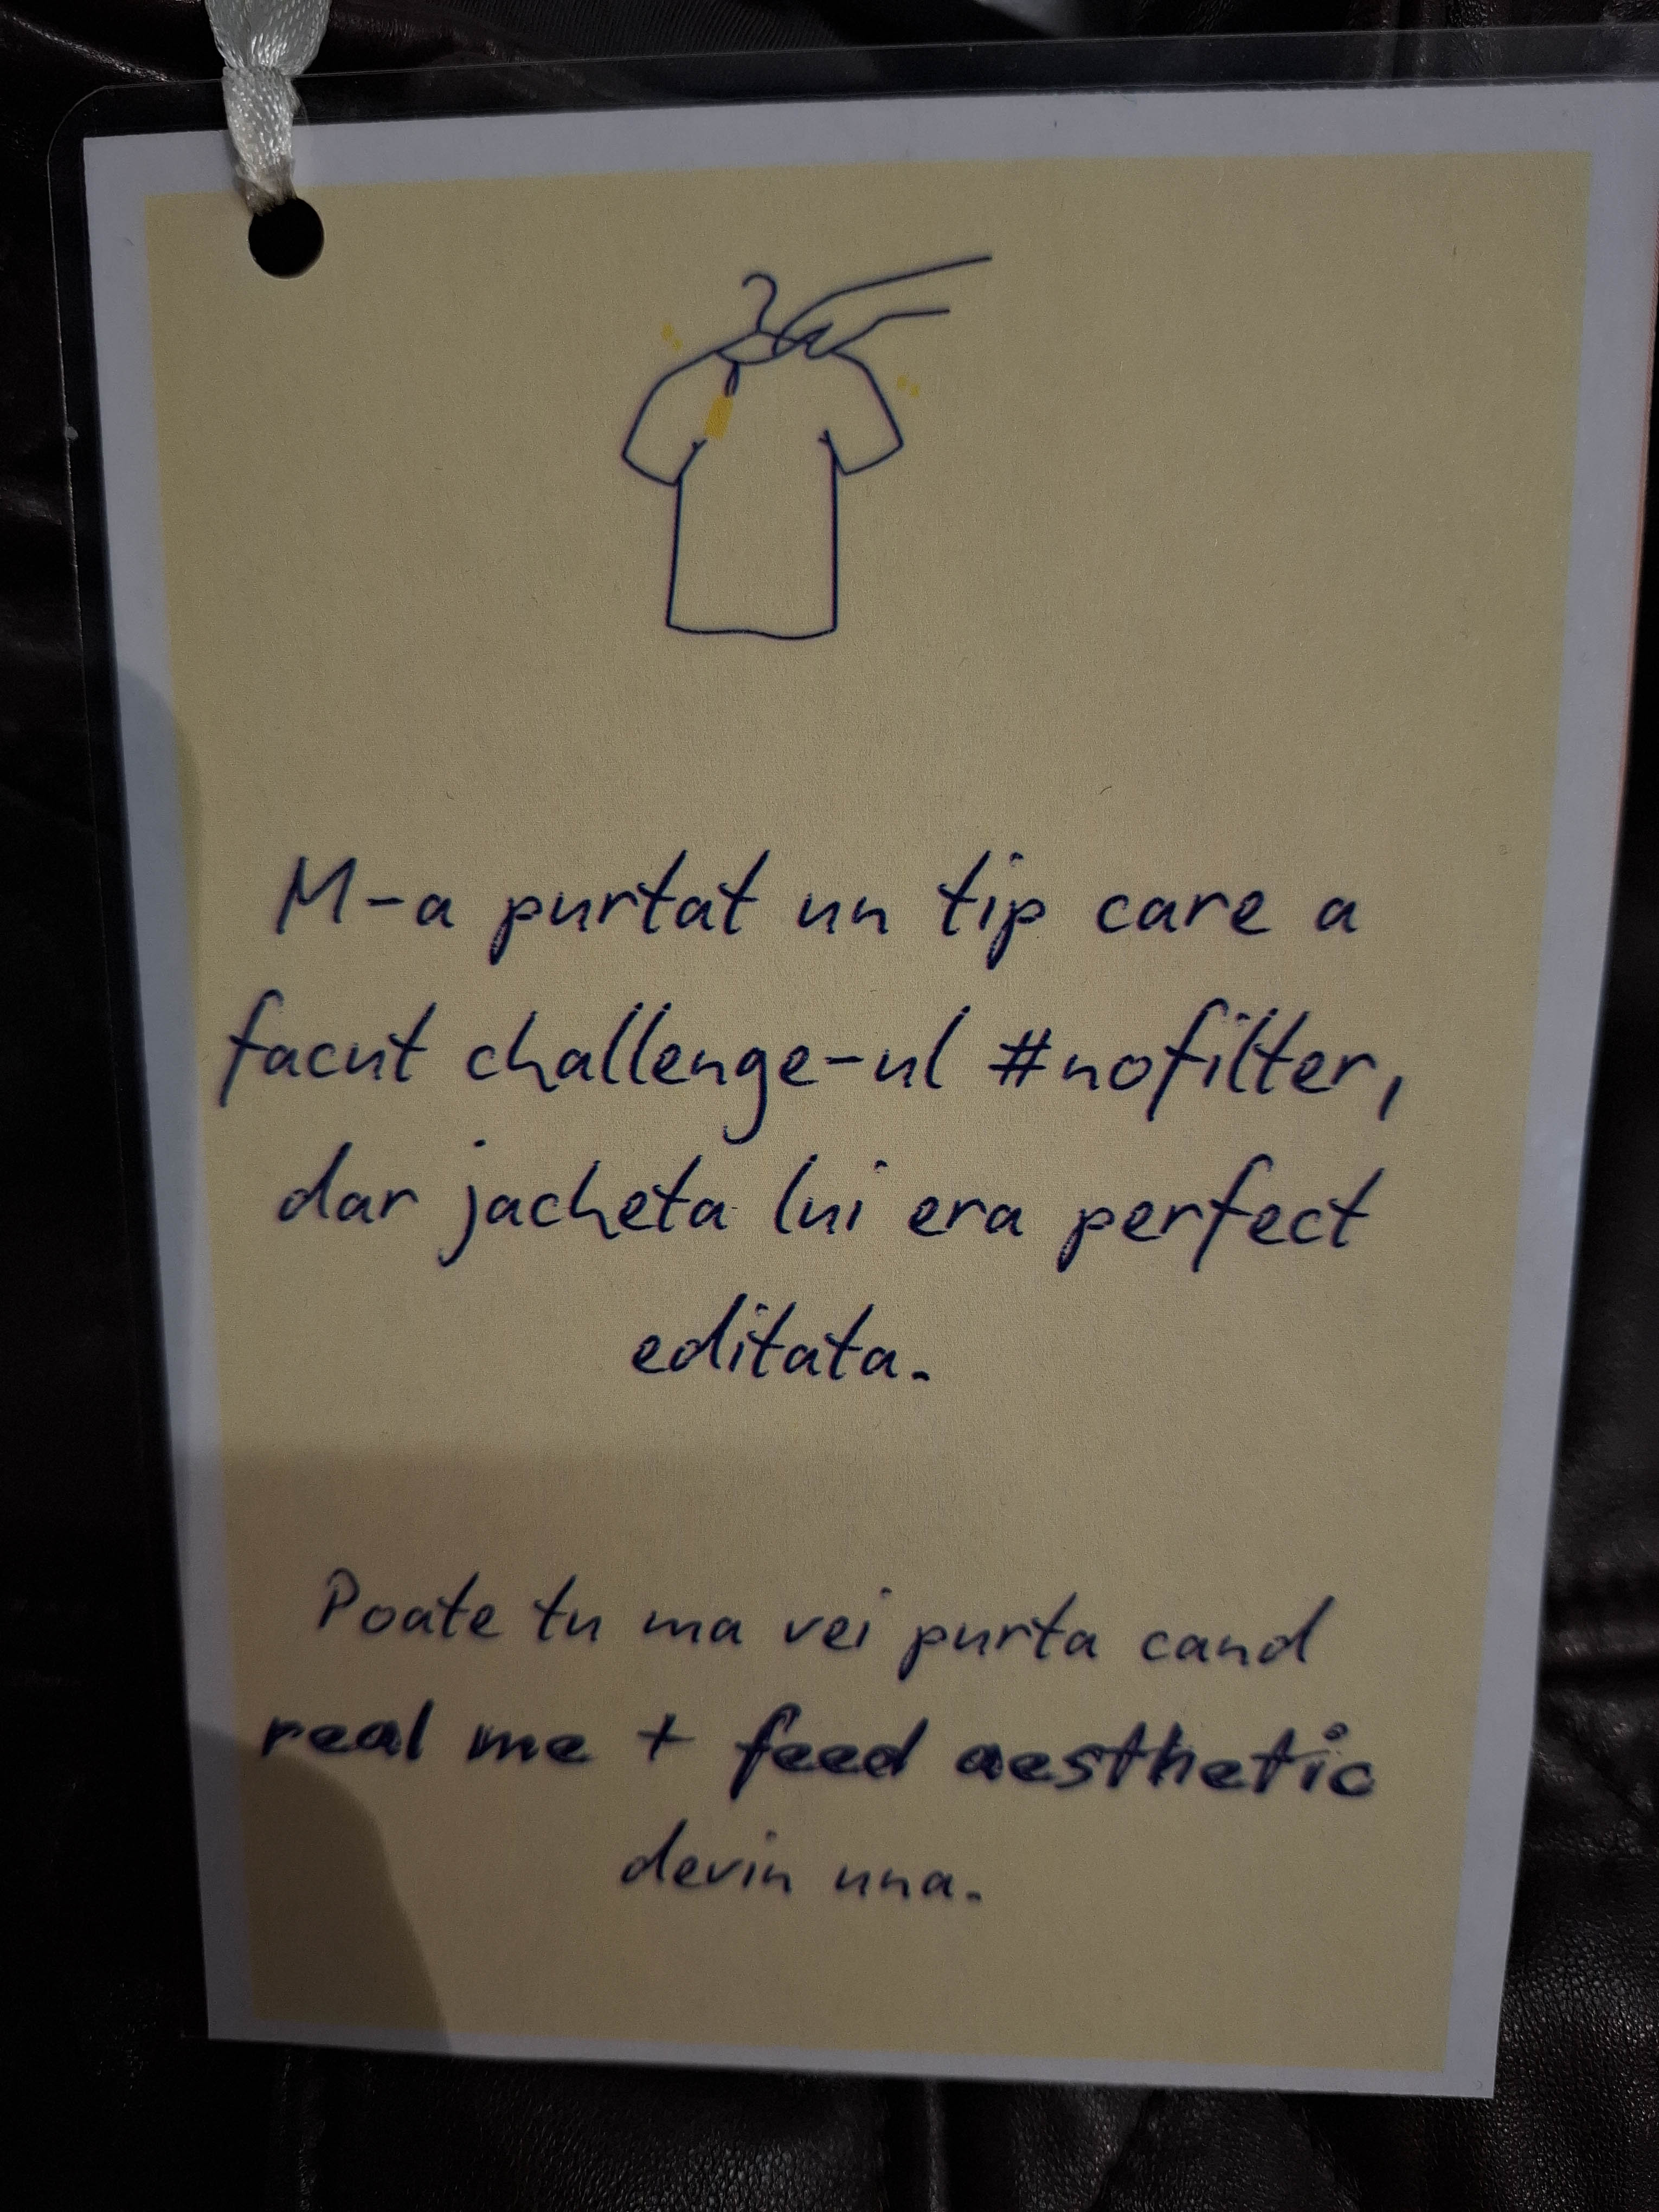 M-a purtat un tip care a
facut challenge-ul #nofilter,
dar jacheta lui era perfect
editata.
Poate tu ma vei purta cand
real me + feed aesthetic
devin una.